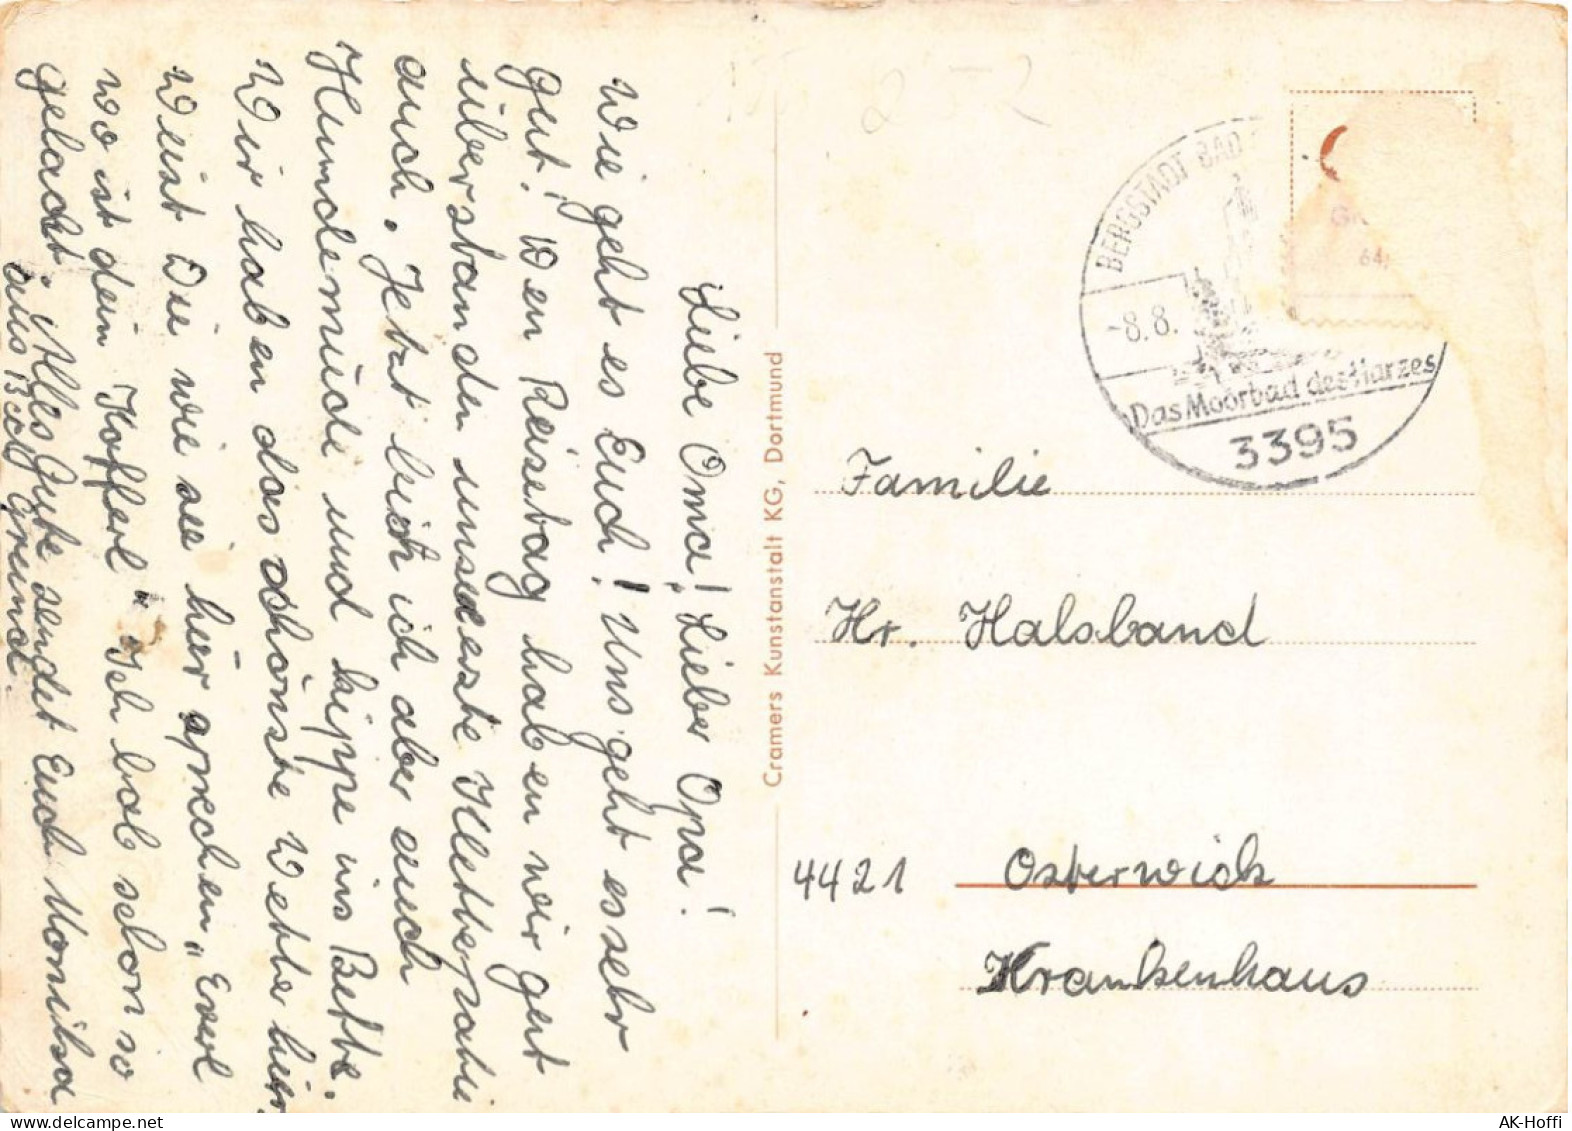 Liebe Oma! Lieber Opa!
Wie geht es Euch! Uns geht es sehr
gut! Den Reisetag haben wir gut
überstanden unsere erste Kletterpatie
auch. Jetzt bich ich aber auch
Hundemüde und kippe ins Bette.
Wir haben das schönste Wette hier,
Weist Du wie sie hier sprechen „Everl
wo ist dein Kofferl" Ich hab schon so
gelacht. Alles Gute sendet Euch Monika
aus Bad Grund.
Cramers Kunstanstalt KG, Dortmund
BERGSTADT BAD
-8.8.
Das Moorbad des Harzes
3395
64
Familie
Hr. Halsband
4421 Osterwick
Krankenhaus
AK-Hoffi